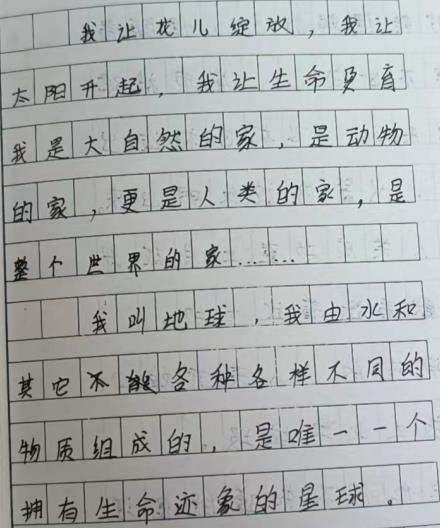 我让花儿绽放，我让
太阳升起，我让生命更有
我是大自然的家，是动物
的家，更是人类的家，是
整个世界的家……
我叫地球，我由水和
其它不能各种各样不同的
物质组成的，是唯一一个
拥有生命迹象的星球。